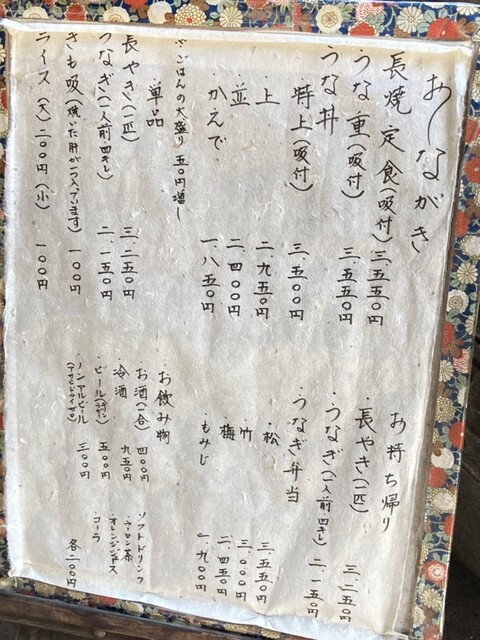 おしながき
長焼定食(吸付) 三、五五〇円
・うな重(吸付) 三、五五〇円
うな丼
・特上(吸付) 三、五〇〇円
・上 二、九五〇円
・並 二、四〇〇円
・かえで 一、八五〇円
※ごはんの大盛り 五〇円増し
・単品
長やき(一匹) 三、二五〇円
うなぎ(一人前四キレ) 二、一五〇円
きも吸(焼いた肝が一つ入っています) 一〇〇円
ライス(大)二〇〇円(小) 一〇〇円
お持ち帰り
・長やき(一匹) 三、二五〇円
・うなぎ(一人前・四キレ) 二、一五〇円
・うなぎ弁当
・松 三、五五〇円
・竹 三、〇〇〇円
・梅 二、四五〇円
・もみじ 一、九〇〇円
・お飲み物
お酒(一合) 四〇〇円
冷酒 九五〇円
・ビール 五〇〇円
・ノンアルビール 三〇〇円
(アサヒドライゼロ)
ソフトドリンク
・ウーロン茶
・オレンジジュース
・コーラ
各二〇〇円